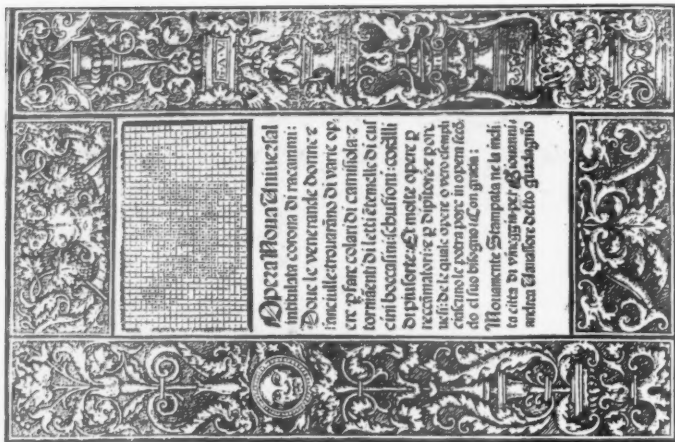 Opera Noua Uniuersal
intitulata corona di racammi:
Doue le venerande donne e
fanciulle trouarāno di varie op
ere p̄ fare colari di camisiola: e
torniāenti di letti ētemelle di cus
cini boccasini schufioni: cordlli
di piu sorte: Et molte opere p
reccāmatori e p dipītori: e pore
uesi: de le quale opere o vero esempli
ciascuno le potra pore in opera secō
do el suo bisogno: Con gracia:
Nouamente Stampata ne la incli
ta citta di vineggia per Giouanni
andrea Uauassore detto guadagnio